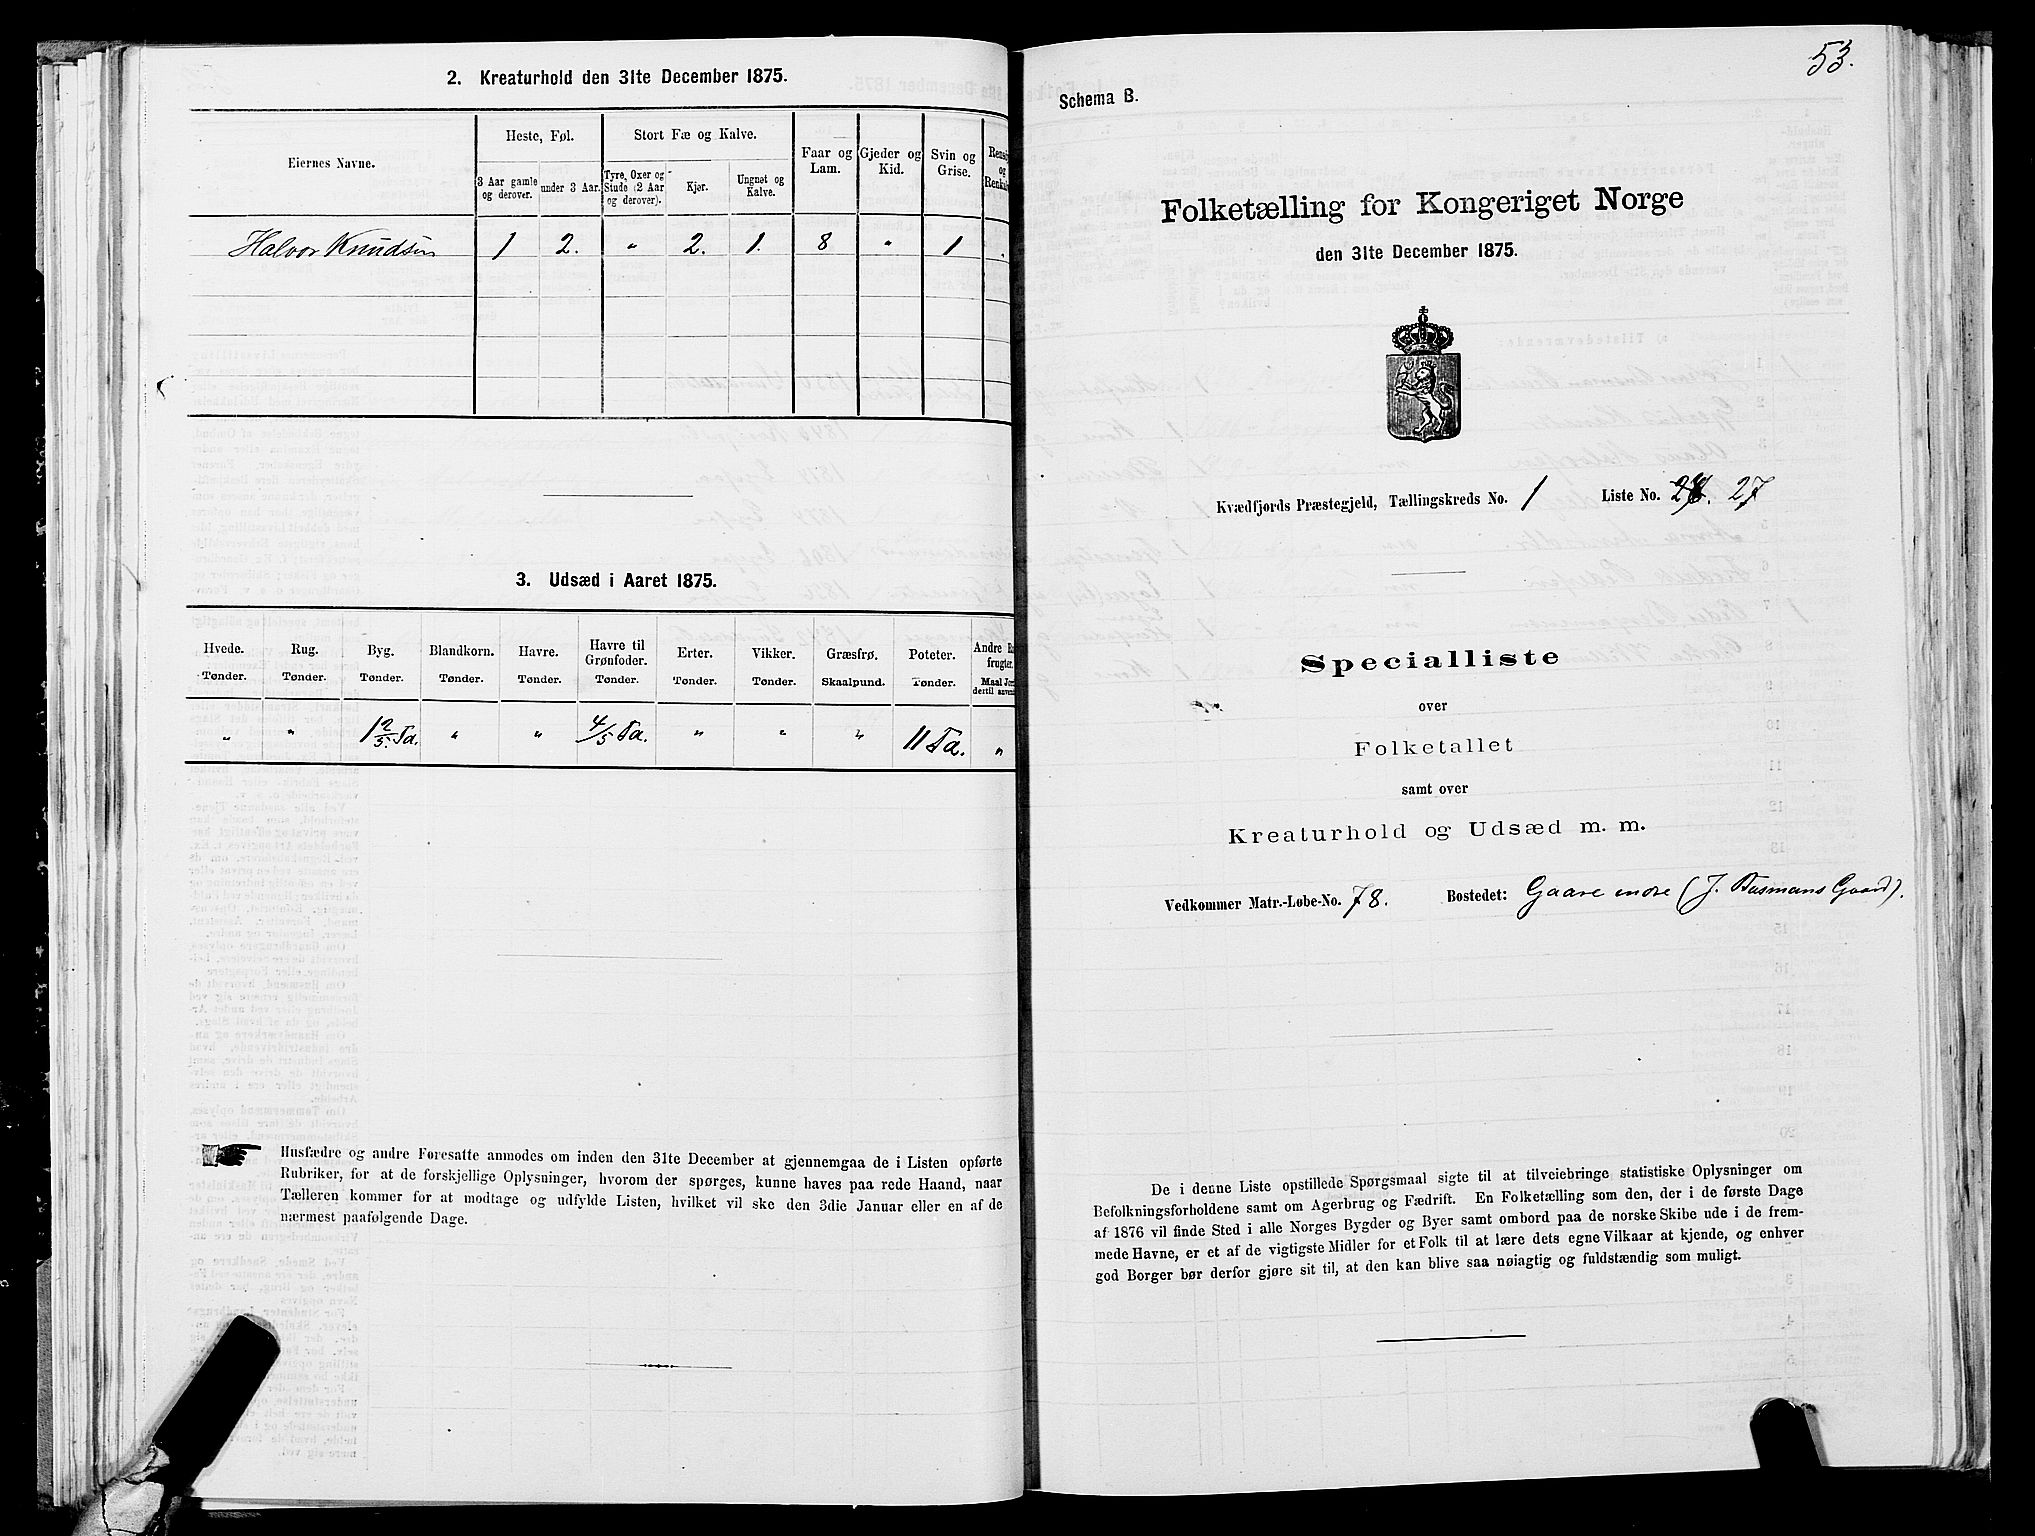 2. Kreaturhold den 31te December 1875.
Eiernes Navne.
Heste, Føl.
Stort Fæ og Kalve.
Faar og Lam.
Gjeder og Kid.
Svin og Grise.
3 Aar gamle og derover.
under 3 Aar.
Tyre, Oxer og Stude (2 Aar og derover).
Kjør.
Ungnøt og Kalve.
Halvor Knudsen 1 2. " 2. 1. 8 " 1 .
3. Udsæd i Aaret 1875.
Hvede. Rug. Byg. Blandkorn. Havre. Havre til Grønfoder. Erter. Vikker. Græsfrø. Poteter. Andre
Tønder. Tønder. Tønder. Tønder. Tønder. Tønder. Tønder. Tønder. Skaalpund. Tønder.
" " 1 2/5 Td. " " 4/5 Td. " " " 11 Td. "
Husfædre og andre Foresatte anmodes om inden den 31te December at gjennemgaa de i Listen opførte
Rubriker, for at de forskjellige Oplysninger, hvorom der spørges, kunne haves paa rede Haand, naar
Tælleren kommer for at modtage og udfylde Listen, hvilket vil ske den 3die Januar eller en af de
nærmest paafølgende Dage.
53.
Schema B.
Folketælling for Kongeriget Norge
den 31te December 1875.
Kvædfjords Præstegjeld, Tællingskreds No. 1 Liste No. 27
Specialliste
over
Folketallet
samt over
Kreaturhold og Udsæd m. m.
Vedkommer Matr.-Løbe-No. 78. Bostedet: Gaare indre (J. Busmans Gaard).
De i denne Liste opstillede Spørgsmaal sigte til at tilveiebringe statistiske Oplysninger om
Befolkningsforholdene samt om Agerbrug og Fædrift. En Folketælling som den, der i de første Dage
af 1876 vil finde Sted i alle Norges Bygder og Byer samt ombord paa de norske Skibe ude i de frem-
mede Havne, er et af de vigtigste Midler for et Folk til at lære dets egne Vilkaar at kjende, og enhver
god Borger bør derfor gjøre sit til, at den kan blive saa nøiagtig og fuldstændig som muligt.